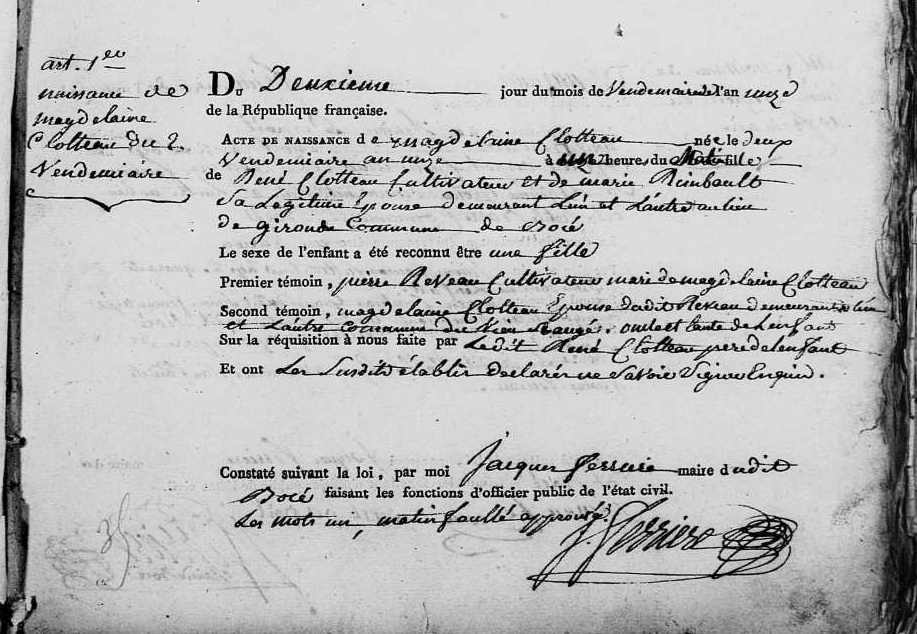 art. 1er
naissance de
magdelaine
Clotteau du 2.
Vendemiaire
Du Deuxieme jour du mois de Vendemiaire de l'an unze
de la République française.
Acte de naissance de magdelaine Clotteau née le deux
Vendemiaire an unze à heures du Matin fille
de René Clotteau Cultivateur et de marie Rimbault
Sa Legitime Epouse demeurant L'un et L'autre au lieu
de gironde Commune de Bocé
Le sexe de l'enfant a été reconnu être une fille
Premier témoin, pierre Reveau Cultivateur mari de magdelaine Clotteau
Second témoin, magdelaine Clotteau Epouse dudit Reveau demeurants L'un
et L'autre Commune du Vieil Baugé, oncle et tante de L'enfant
Sur la réquisition à nous faite par Ledit René Clotteau pere de lenfant
Et ont Les Susdits établir declarér ne Savoir Signer Enquis.
Constaté suivant la loi, par moi Jacques ferriere maire dudit
Bocé faisant les fonctions d'officier public de l'état civil.
Les mots un, matin approuvé.
J. ferriere